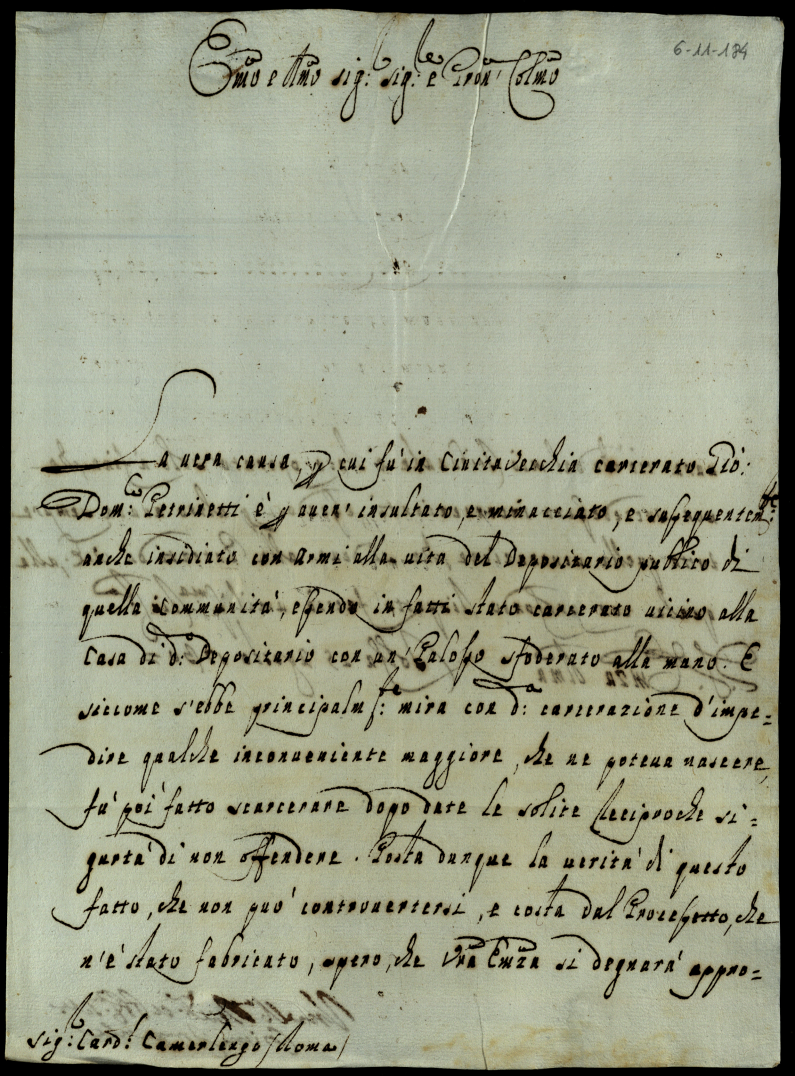 6-11-184
Emo e Rmo Sig.r Sig.re e Pron' Colmo
La vera causa, p cui fu' in Civitavecchia carcerato Gio:
Dom:co Petrinetti è p aver' insultato, e minacciato, e susseguentem:te
anche insidiato con armi alla vita del Depositario publico di
quella Communità, essendo in fatti stato carcerato vicino alla
Casa di d:o Depositario con un' Palosso sfoderato alla mano. E
siccome s'ebbe principalm:te mira con d:a carcerazione d'impe=
dire qualche inconveniente maggiore, che ne poteva nascere,
fu' poi fatto scarcerare dopo date le solite reciproche si=
gurtà di non offendere. Posta dunque la verità di questo
fatto, che non può controvertersi, e costa dal Processetto, che
n'è stato fabricato, spero, che Vra Emza si degnarà appro=
Sig:r Card:l Camerlengo (Roma)